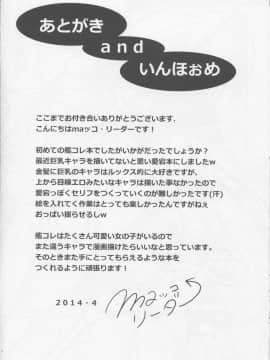 あとがき
and
いんほぉめ
ここまでお付き合いありがとうございます。
こんにちはmaッコ・リーダーです!
初めての艦コレ本でしたがいかがだったでしょうか?
最近巨乳キャラを描いてないと思い愛宕本にしましたw
金髪に巨乳のキャラはルックス的に大好きですが、
上から目線エロみたいなキャラは描いた事なかったので
愛宕っぽくセリフをつくっていくのが難しかったです(汗)
絵を入れてく作業はとっても楽しかったんですがねぇ
おっぱい揺らせるしw
艦コレはたくさん可愛い女の子がいるので
また違うキャラで漫画描けたらいいなと思っています。
そのときまた手にとってもらえるような本を
つくれるように頑張ります!
2014・4
maッコ
リーダー